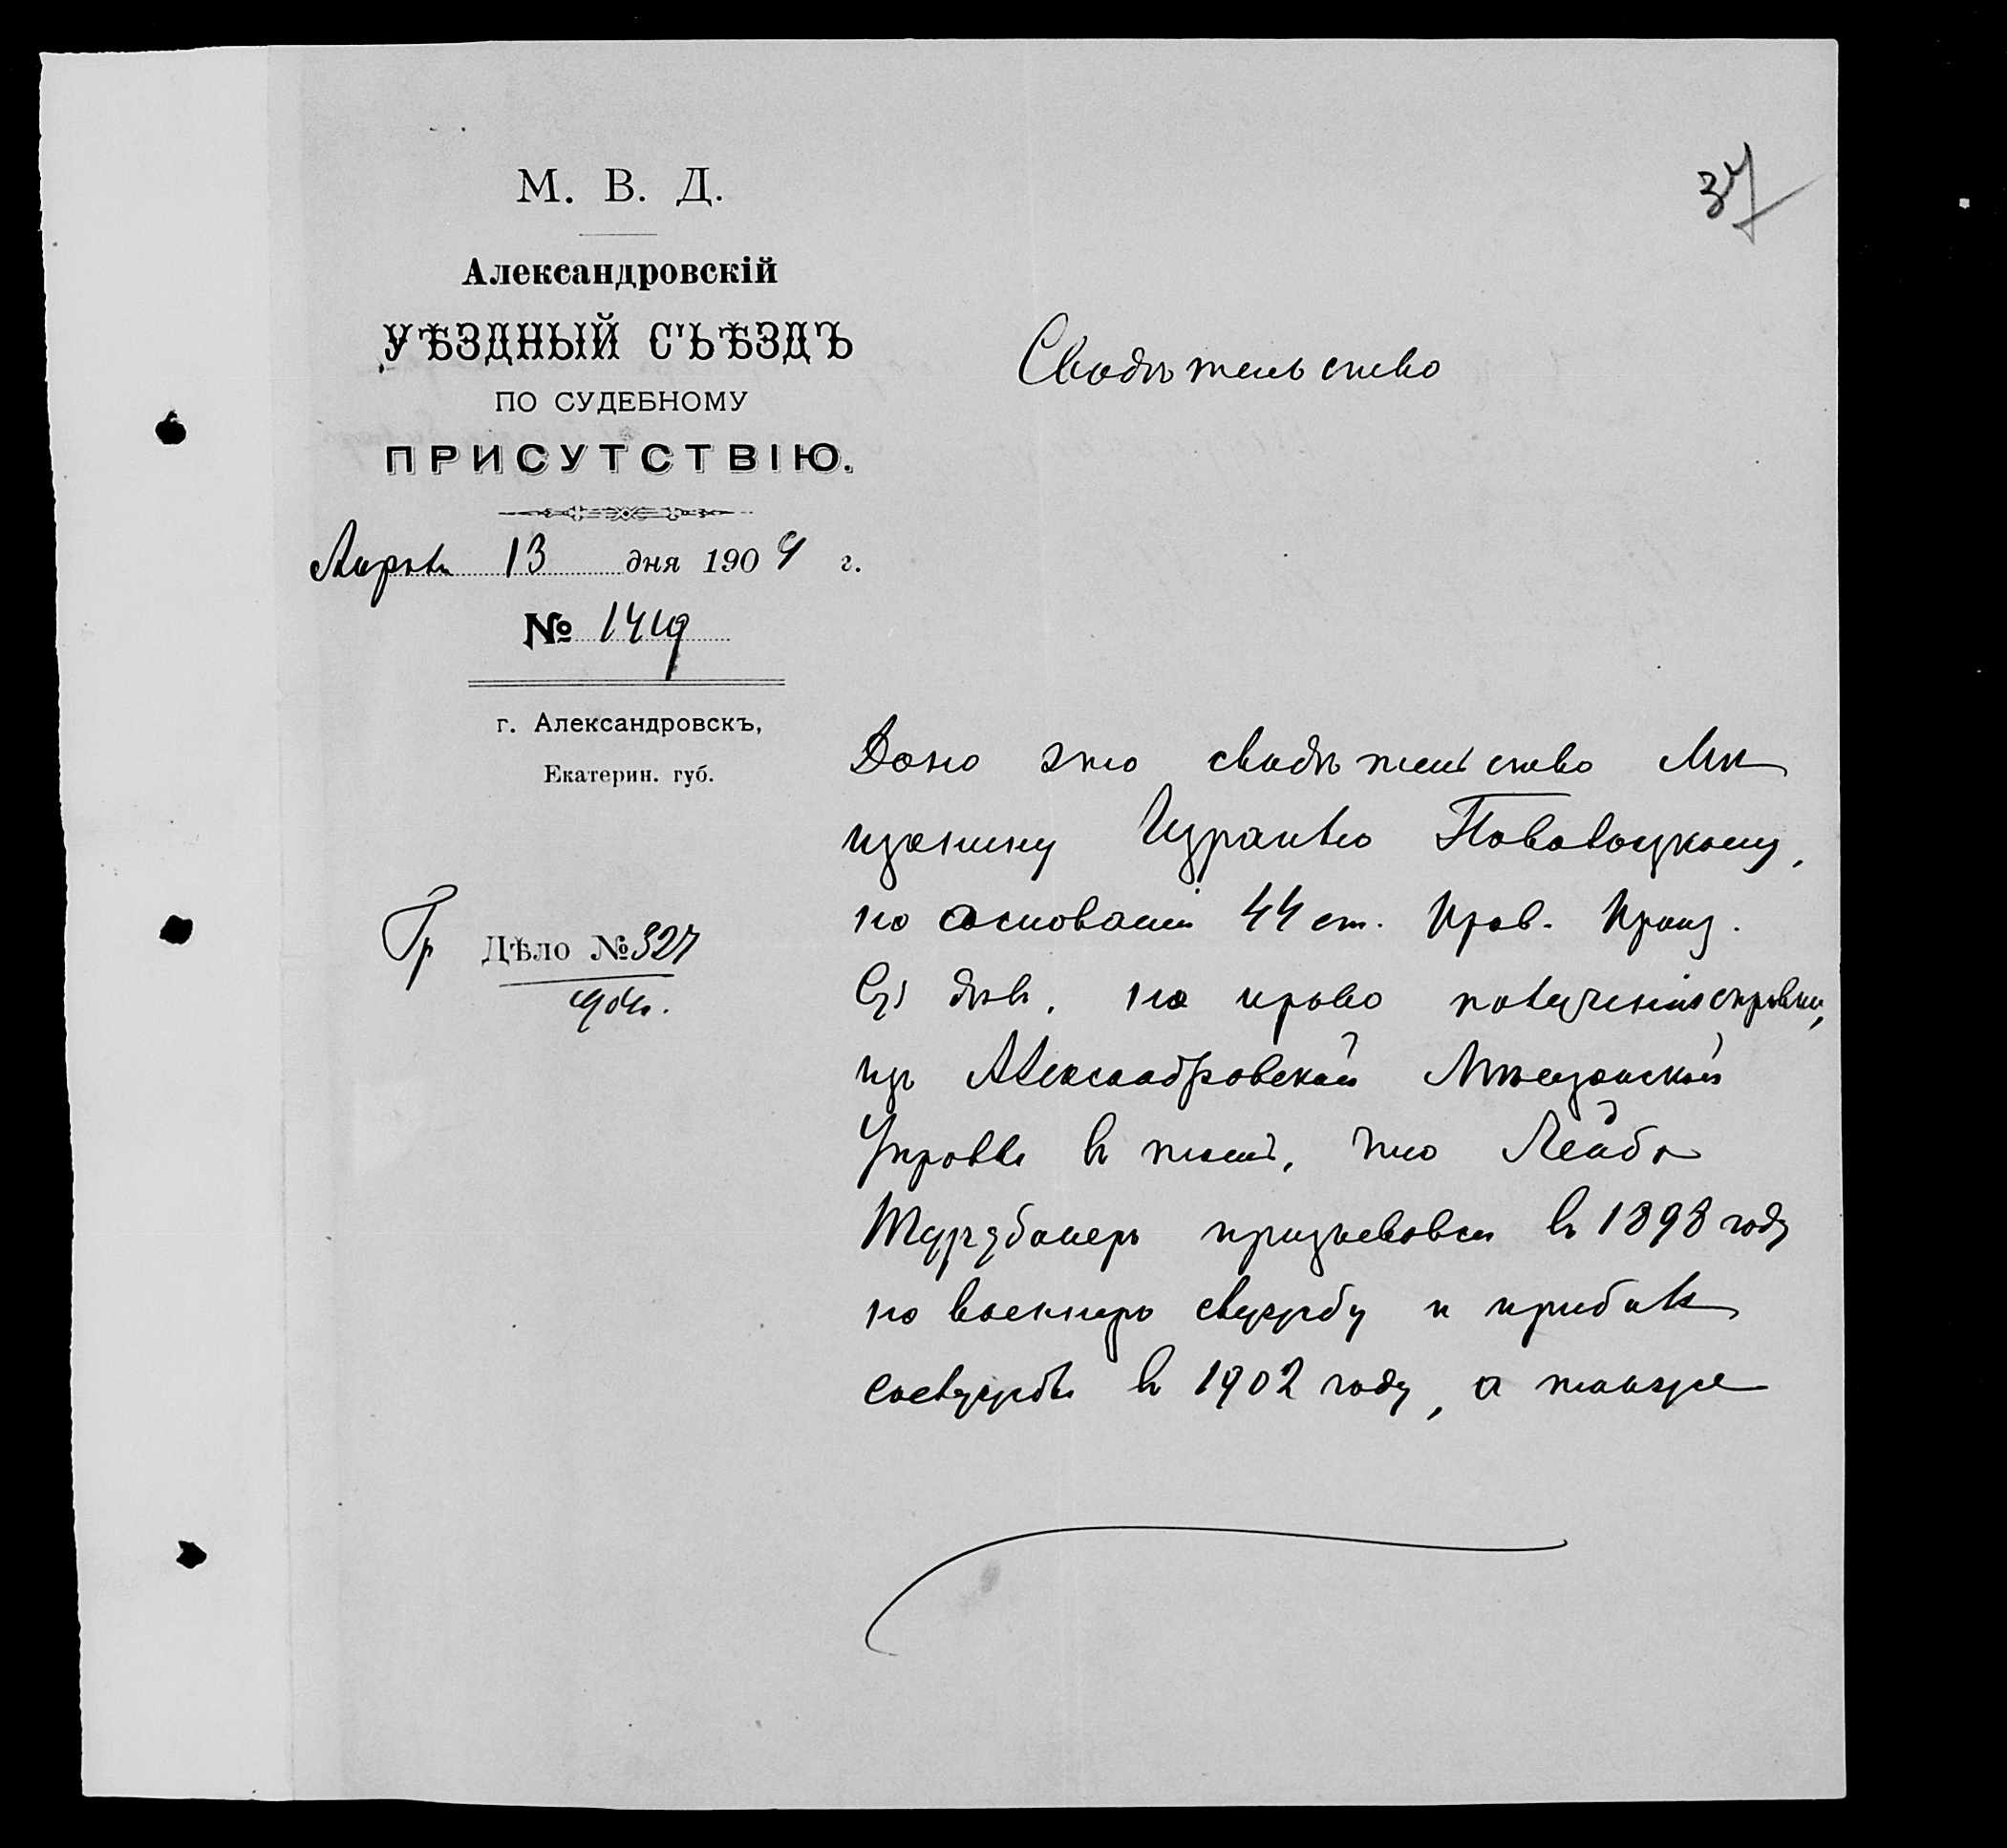 37
М. В. Д.
Александровскій
УѢЗДНЫЙ СЪѢЗДЪ
ПО СУДЕБНОМУ
ПРИСУТСТВІЮ.
Апрѣля 13 дня 1904 г.
№ 1419
г. Александровскъ,
Екатерин. губ.
Гр Дѣло № 327
904.
Свидѣтельство
Дано это свидѣтельство Мѣ
щанину Израилю
на основаніи 44 ст. Прав. Произ.
Суд. дѣлъ, на право полученія справки,
изъ Александровской Мѣщанской
Управы въ томъ, что Лейба
призывался въ 1898 году
на военную службу и прибылъ
въ 1902 году, а также